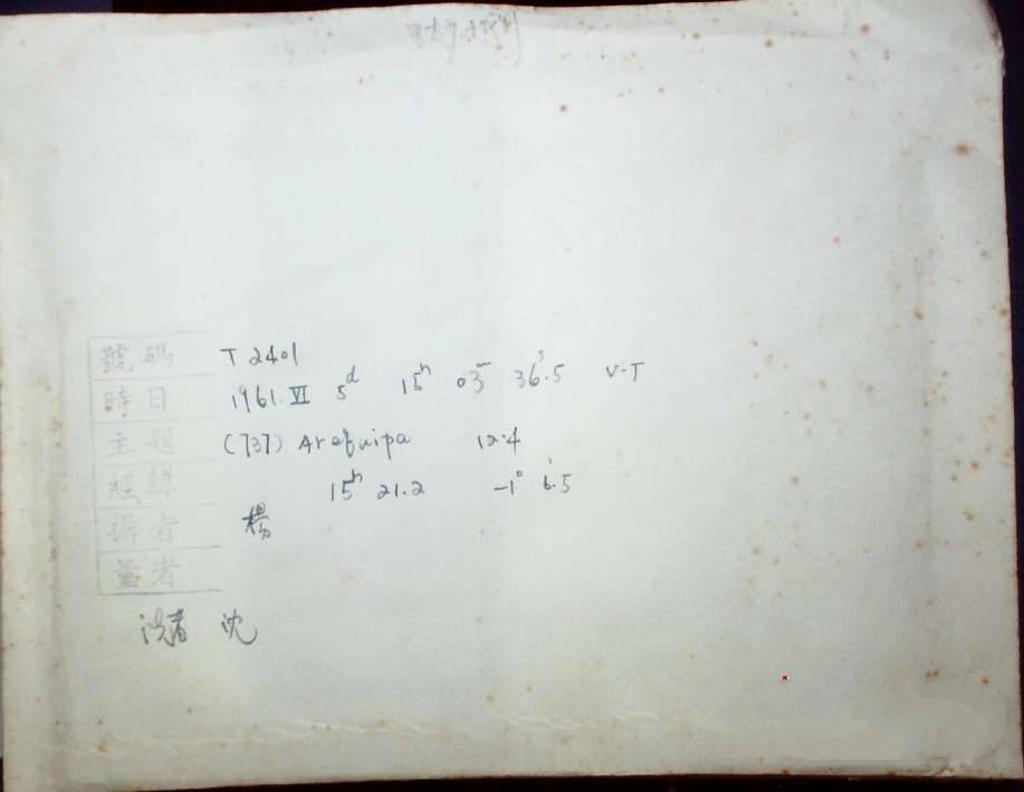 號碼 T 2401
時日 1961.VI 5d 15h 03m 36s.5 U.T
主題 (737) Arequipa 12.4
經緯 15h 21.2 -1° 6'.5
攝者 楊
量者
沈